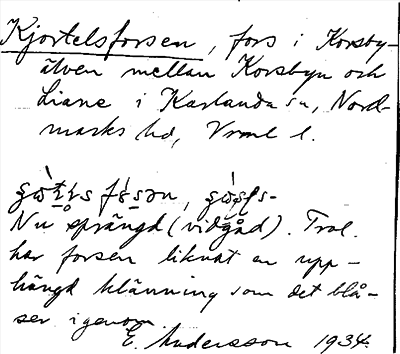 Kjortelsforsen, fors i Korsby-
älven mellan Korsbyn och
Liane i Karlanda sn, Nord-
marks hd, Vrml l.
Nu sprängd (vidgåd). Trol.
har forsen liknat en upp-
hängd klänning som det blå-
ser igenom.
E. Andersson 1934.